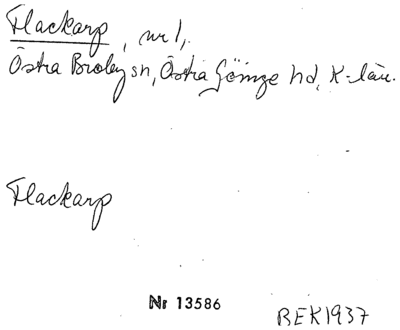 Flackarp, nr 1,
Östra Broby sn, Östra Göinge hd, K-län.
Flackarp
Nr 13586
BEK1937